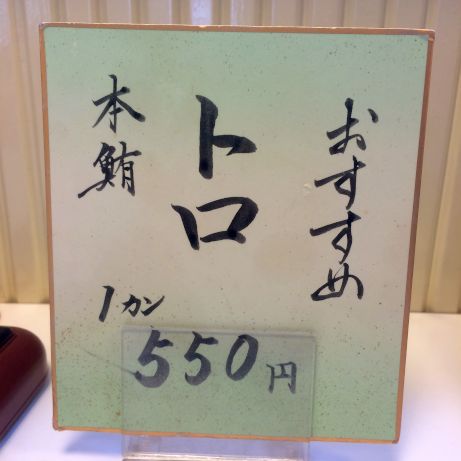 おすすめ
トロ
本鮪
1カン
550円